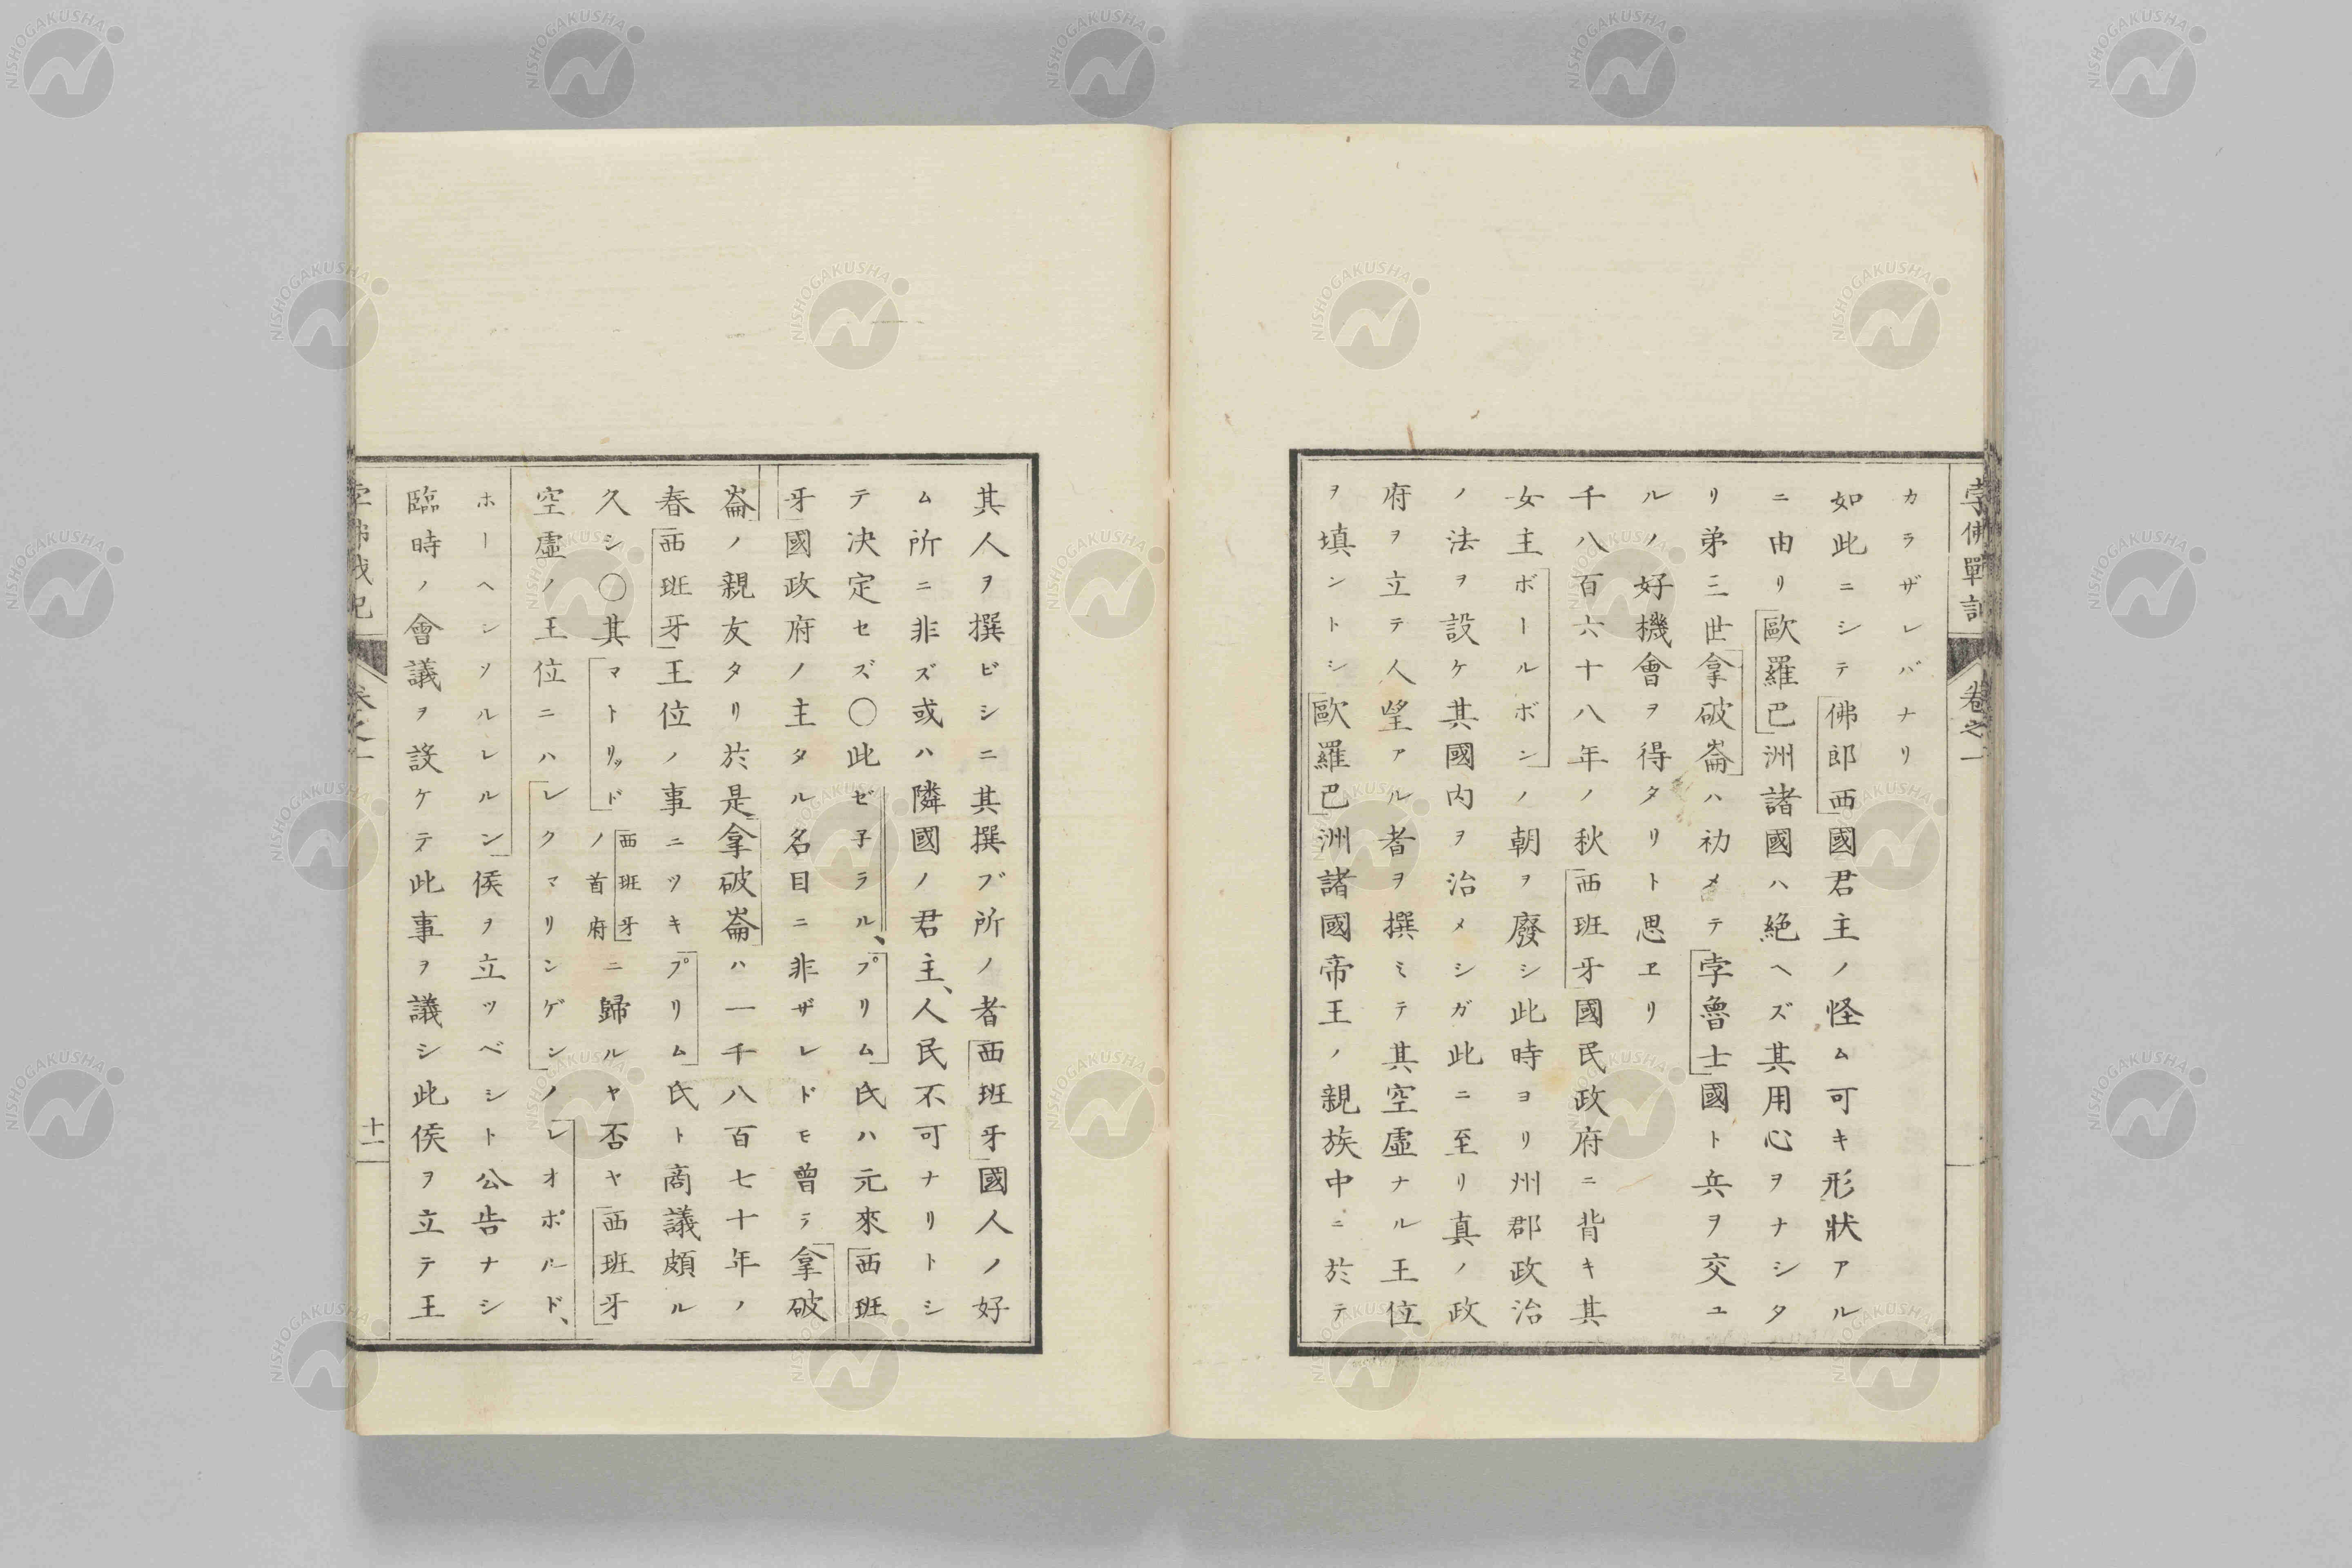 孛佛戰記
卷之一
カラザレバナリ
如此ニシテ佛郎西國君主ノ怪ム可キ形狀アル
ニ由リ歐羅巴洲諸國ハ絶ヘズ其用心ヲナシタ
リ弟三世拿破崙ハ初メテ孛魯士國ト兵ヲ交ユ
ルノ好機會ヲ得タリト思ヱリ
千八百六十八年ノ秋西班牙國民政府ニ背キ其
女主ボールボンノ朝ヲ廢シ此時ヨリ州郡政治
ノ法ヲ設ケ其國内ヲ治メシガ此ニ至リ真ノ政
府ヲ立テ人望アル者ヲ撰ミテ其空虛ナル王位
ヲ填ントシ歐羅巴洲諸國帝王ノ親族中ニ於テ
其人ヲ撰ビシニ其撰ブ所ノ者西班牙國人ノ好
ム所ニ非ズ或ハ隣國ノ君主、人民不可ナリトシ
テ决定セズ○此ゼ子ラル、プリム氏ハ元來西班
牙國政府ノ主タル名目ニ非ザレドモ曾ラ拿破
崙ノ親友タリ於是拿破崙ハ一千八百七十年ノ
春西班牙王位ノ事ニツキプリム氏ト商議頗ル
久シ○其マトリッド西班牙ノ首府ニ歸ルヤ否ヤ西班牙
空虛ノ王位ニハレクマリンゲンノレオポルド、
ホーヘンソルレルン侯ヲ立ツベシト公告ナシ
臨時ノ會議ヲ設ケテ此事ヲ議シ此侯ヲ立テ王
十一
NISHOGAKUSHA